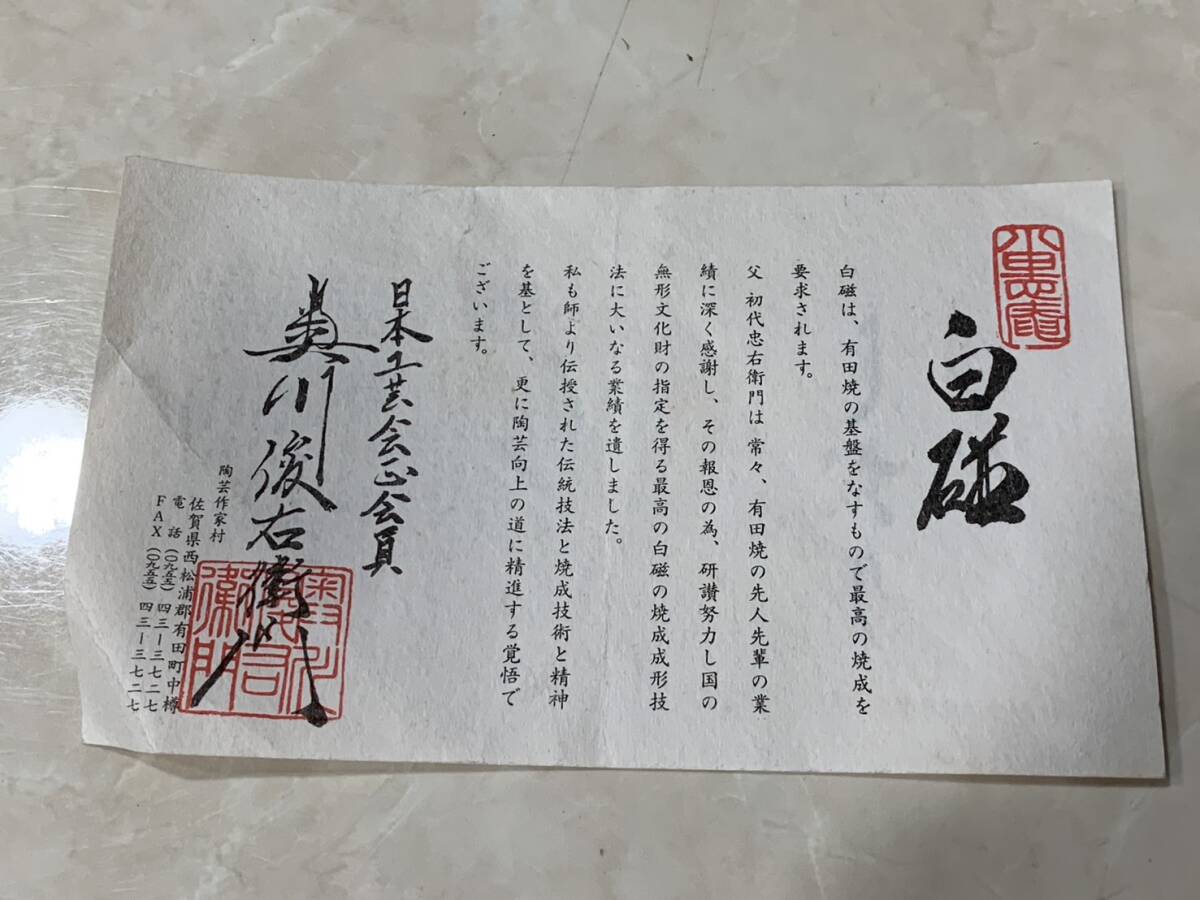 白磁
白磁は、有田焼の基盤をなすもので最高の焼成を
要求されます。
父 初代忠右衛門は 常々、有田焼の先人先輩の業
績に深く感謝し、その報恩の為、研讃努力し国の
無形文化財の指定を得る最高の白磁の焼成成形技
法に大いなる業績を遺しました。
私も師より伝授された伝統技法と焼成技術と精神
を基として、更に陶芸向上の道に精進する覚悟で
ございます。
日本工芸会正会員
奥川俊右衛門
陶芸作家村
佐賀県西松浦郡有田町中樽
電話(〇九五五)四三ー三七二七
FAX(〇九五五)四三ー三七二七